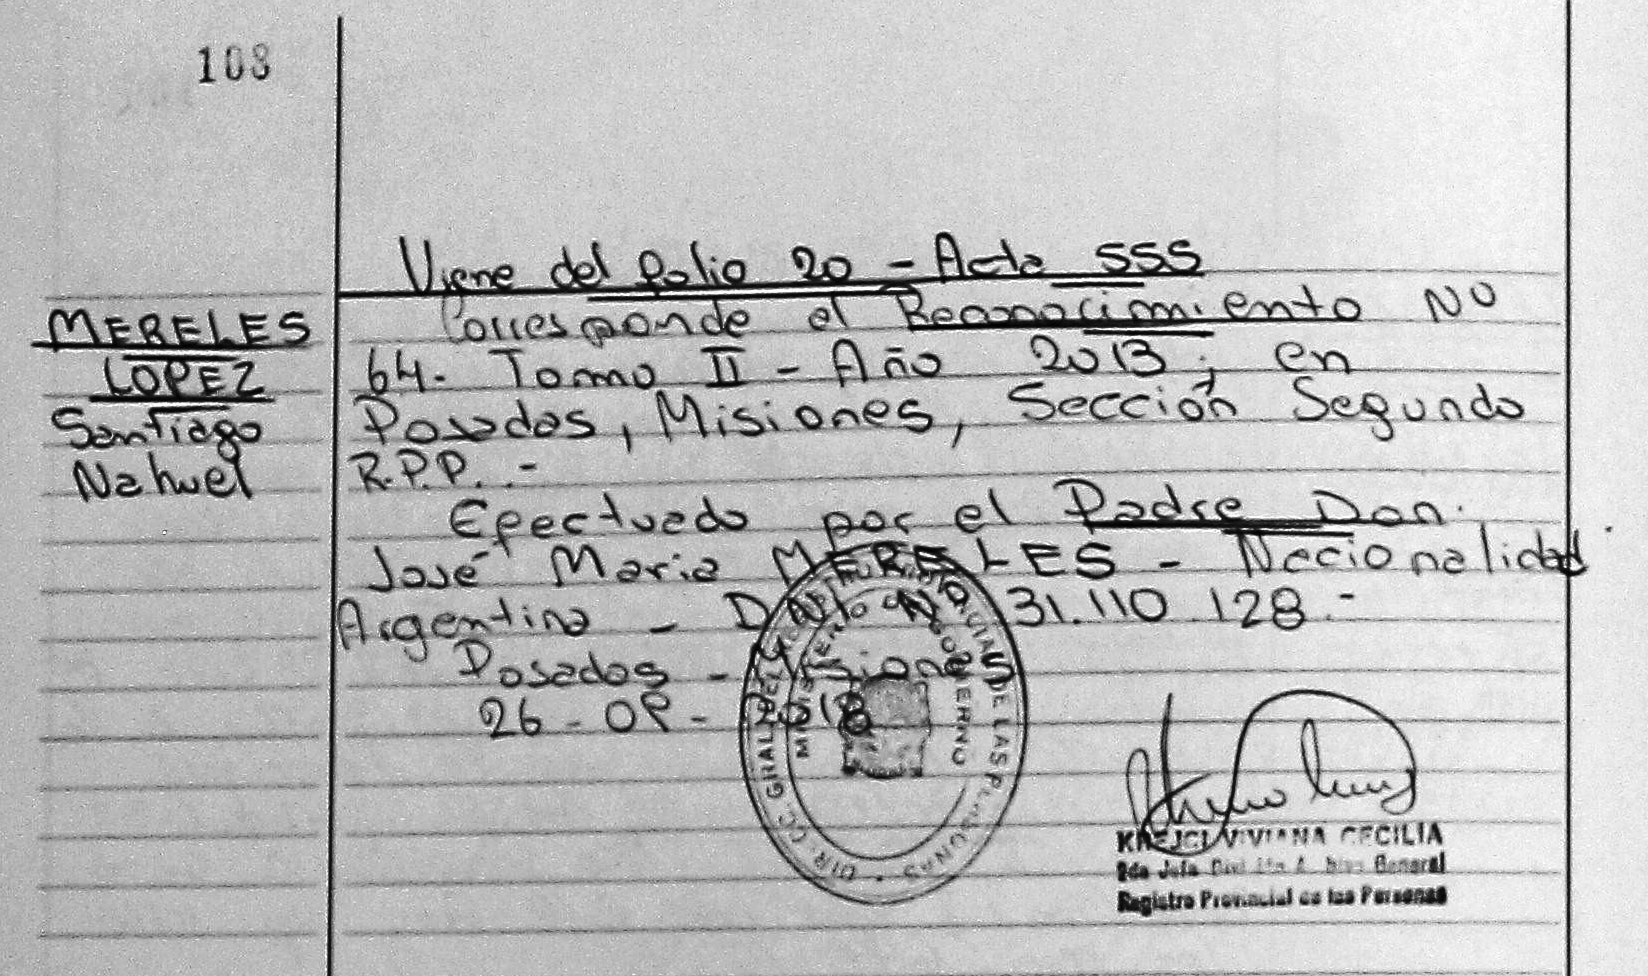 108
Viene del folio 20 - Acta 555
MERELES
LOPEZ
Santiago
Nahuel
Corresponde el Reconocimiento Nº
64. Tomo II - Año 2013; en
Posadas, Misiones, Sección Segundo
R.P.P. -
Efectuado por el Padre Don.
José Maria MERELES - Nacionalidad
Argentina - D.N.I. Nº 31.110.128.-
Posadas - Misiones
26 - 08 - 2013
DIR. GRAL. DEL REGISTRO PROVINCIAL DE LAS PERSONAS
MINISTERIO DE GOBIERNO
KREJCI VIVIANA CECILIA
2da Jefa General
Registro Provincial de las Personas